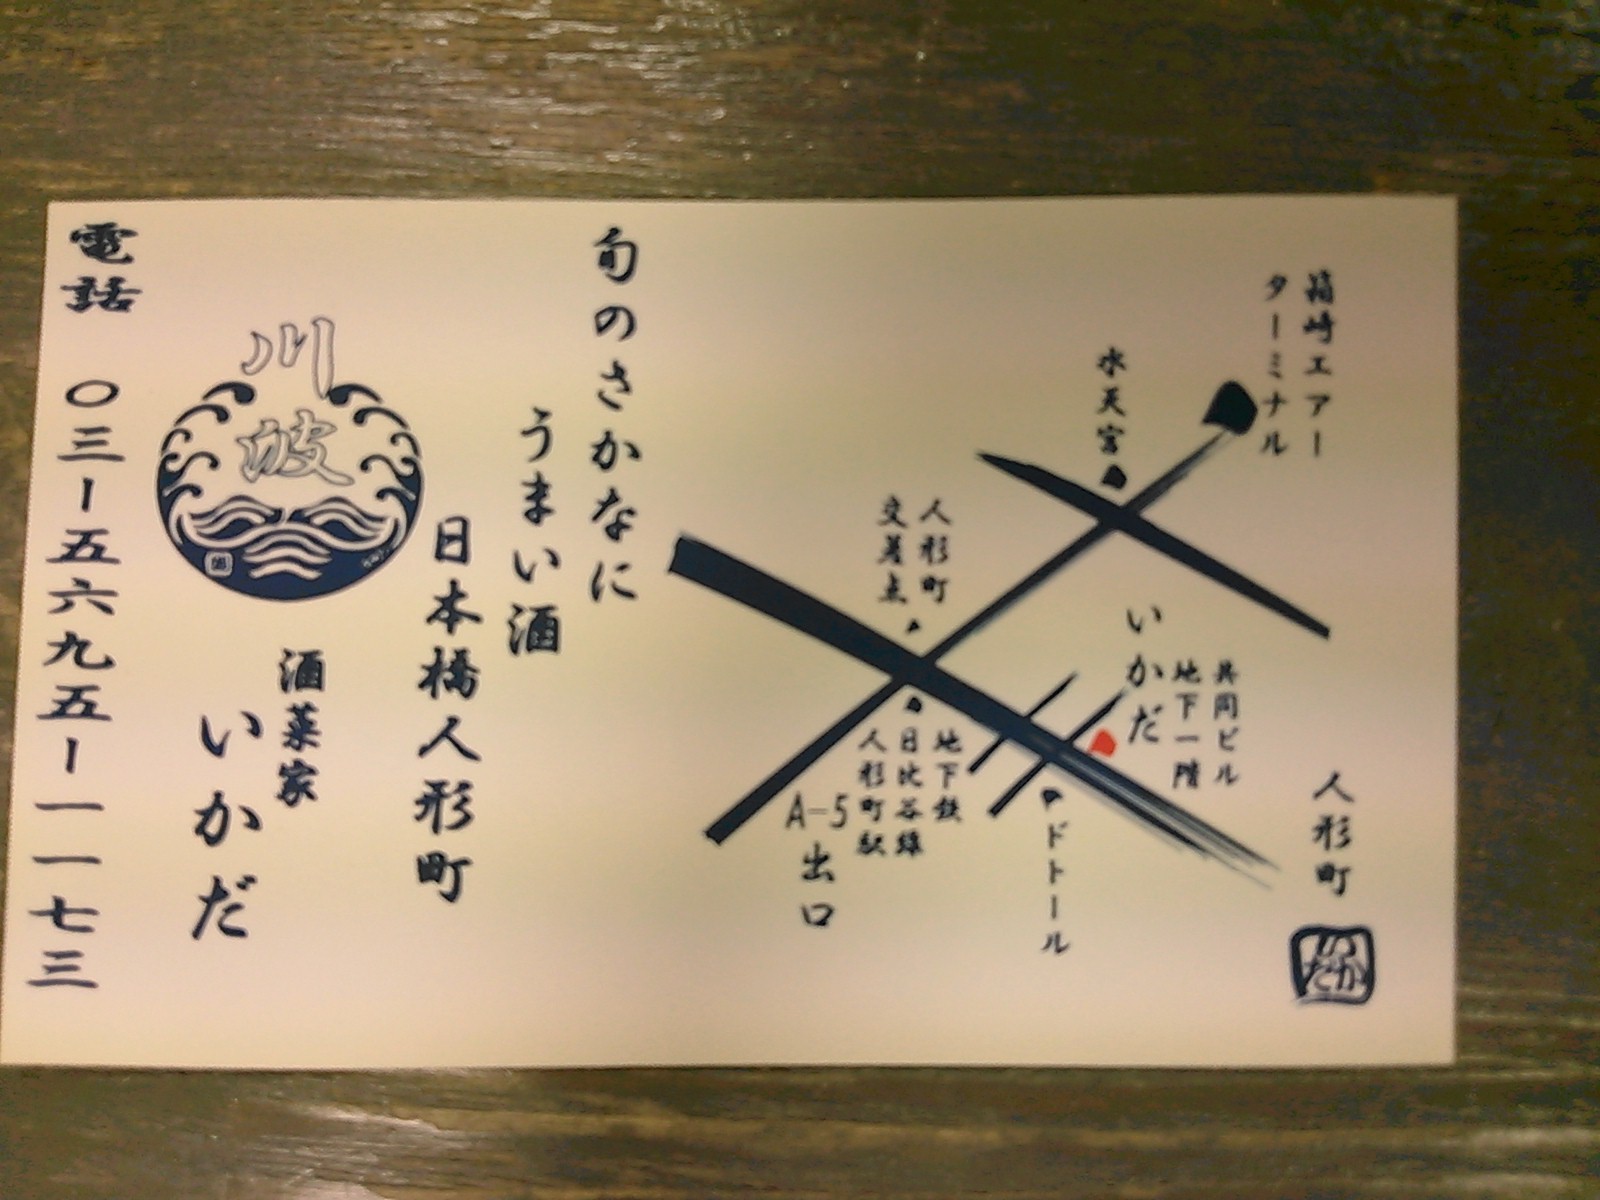 箱崎エアー
ターミナル
水天宮
人形町
交差点
いかだ
共同ビル
地下一階
人形町
いかだ
地下鉄
日比谷線
人形町駅
A-5出口
ドトール
旬のさかなに
うまい酒
日本橋人形町
酒菜家
いかだ
川波
電話 〇三ー五六九五ー一一七三